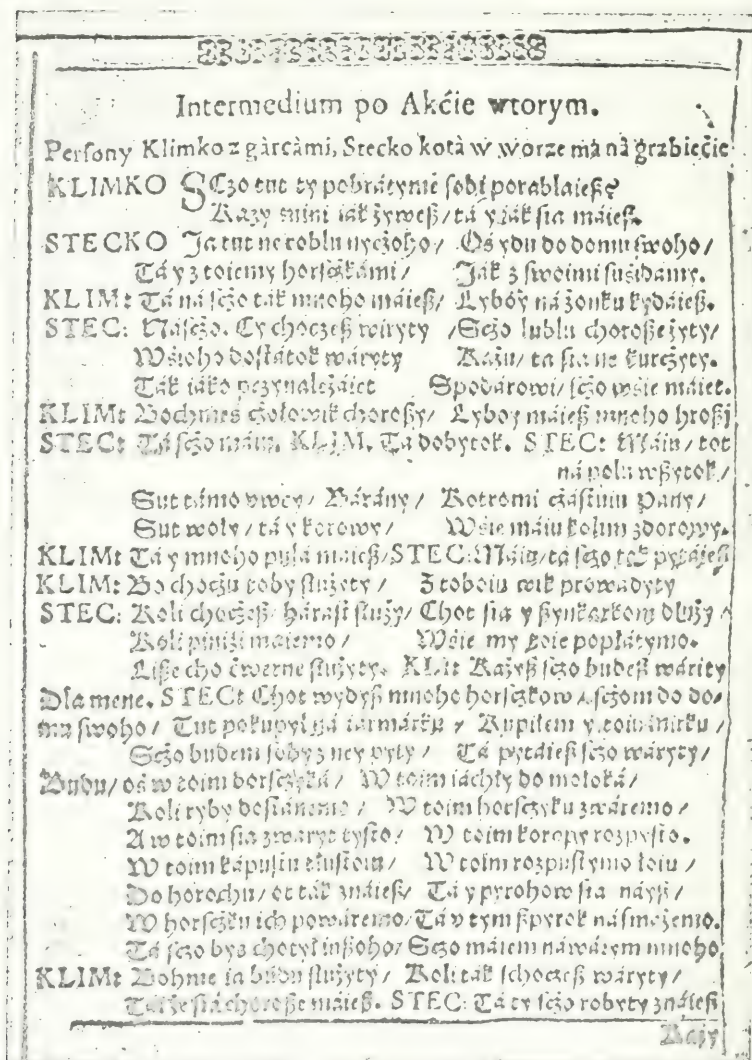 Intermedium po Akćie wtorym.
Persony Klimko z gàrcámi, Stecko kotà w worze má ná grzbiećie
KLIMKO Sczo tut ty pobrátymie sobi porablaiesz?
Kazy mini iak żywesz / tá y iák sia máiesz.
STECKO Ja tut ne roblu nyczoho / Oś ydu do domu swoho /
Tá y z toiemy horsczkámi / Ják z swoimi susidamy.
KLIM: Tá ná sczo ták mnoho máiesz / Lyboy ná żonku kydáiesz.
STEC: Násczo. Cy choczesz wiryty / Sczo lublu chorosze żyty /
Wsioho dostátok wáryty Každu / ta sia ne kurczyty.
Ták iáko przynależáiet Spodárowi / sczo wsie máiet.
KLIM: Bochmeś czołowik choroszy / Lyboy máiesz mnoho hroszj
STEC: Tá sczo mám. KLIM. Ta dobytok. STEC: Máiu / tot
ná polu wszytok /
Sut támo owcy / Bárány / Kotromi częstuiu Pány /
Sut woły / tá y korowy / Wsie máiu kolim zdorowy.
KLIM: Tá y mnoho pulá máiesz / STEC: Máiu / tá sczo tot pytáiesz
KLIM: Bo choczu toby służyty / Z toboiu wik prowadyty
STEC: Koli choczesz / hárást służy / Chot sia y szynkarkom dłuży /
Koli piniżi máiemo / Wsie my zoie popłátymo.
Lisze cho ćwerne służyty. KLI: Każysz sczo budesz wárity
Dla mene. STEC: Chot wydysz mnoho horsczkow / sczom do do-
mu swoho / Tut pokupył ná iármárku / Kupiłem y toiu
Sczo budem soby z ney pyty / Tá pytáiesz sczo wáryty /
Budu / oś w toim horsczyká / W toim iáchły do mołoká /
Koli ryby dostánemo / W toim horsczyku zwáremo /
A w toim sia zwáryt tysto / W toim koropy rozpysto.
W toim kápustu tłustoiu / W toim rozpustymo łoiu /
Do horochu / ot ták znáiesz / Tá y pyrohow sia náysz /
W horsczku ich powáremo / Tá y tym szpyrok násmażemo.
Tá sczo bys chotył inszoho / Sczo máiem náwárym mnoho
KLIM: Bohme ia budu służyty / Koli ták schoczesz wáryty /
sia chorosze máiesz. STEC: Tá ty sczo robyty znáiesz
Każy